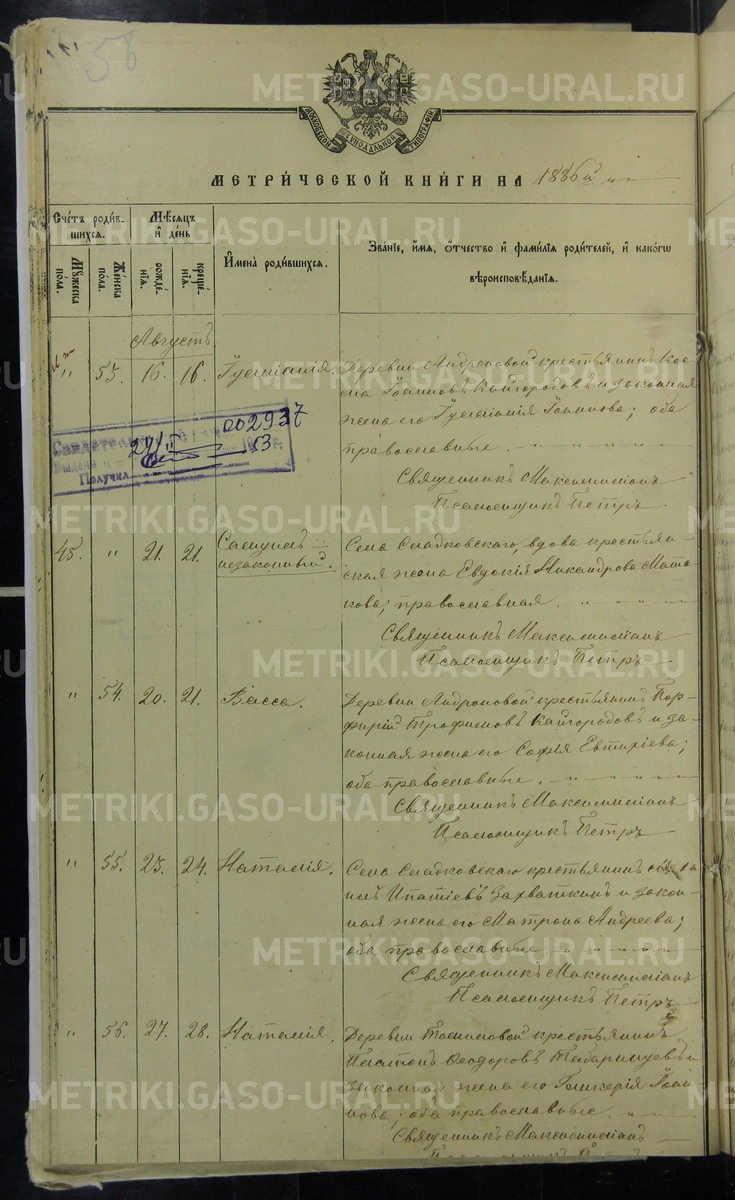 58
МОСКОВСКОЙ СѴНОДАЛЬНОЙ ТИПОГРАФІИ
МЕТРИ́ЧЕСКОЙ КНИ́ГИ НА 1886й
Счетъ роди́вшихся.
Мꙋ́жеска по́ла.
Же́нска по́ла.
Мѣ́сяцъ и҆ де́нь
рожде́нїѧ.
креще́нїѧ.
И҆мена̀ роди́вшихсѧ.
Зва́нїе, и҆́мѧ, ѻ҆́тчество и҆ фами́лїѧ роди́телей, и҆ како́гѡ
вѣроисповѣ́данїѧ.
Августъ
" 53. 16. 16. Іуліанія. Деревни Андроновой крестьянинъ Кос-
ма Іоанновъ Кайгородовъ и законная
жена его Іуліанія Іоаннова; оба
православные.
Священникъ Максимиліанъ
Псаломщикъ Петръ
002937
Получил
45. " 21. 21. Самуилъ незаконный. Села Сладковскаго, вдова крестьян-
ская жена Евдокія Никандрова Мата-
кова; православная.
Священникъ Максимиліанъ
Псаломщикъ Петръ
" 54. 20. 21. Васса. Деревни Андроновой крестьянинъ Пор-
фирій Трофимовъ Кайгородовъ и за-
конная жена его Софія Евтихіева;
оба православные.
Священникъ Максимиліанъ
Псаломщикъ Петръ
" 55. 23. 24. Наталія. Села Сладковскаго крестьянинъ
Ипатіевъ Захваткинъ и закон-
ная жена его Матрона Андреева;
оба православные
Священникъ Максимиліанъ
Псаломщикъ Петръ
" 56. 27. 28. Наталія. Деревни Томиловой крестьянинъ
Платонъ Ѳеодоровъ Табаринцевъ и
законная жена его Гликерія Іоан-
нова; оба православные.
Священникъ Максимиліанъ
METRIKI.GASO-URAL.RU